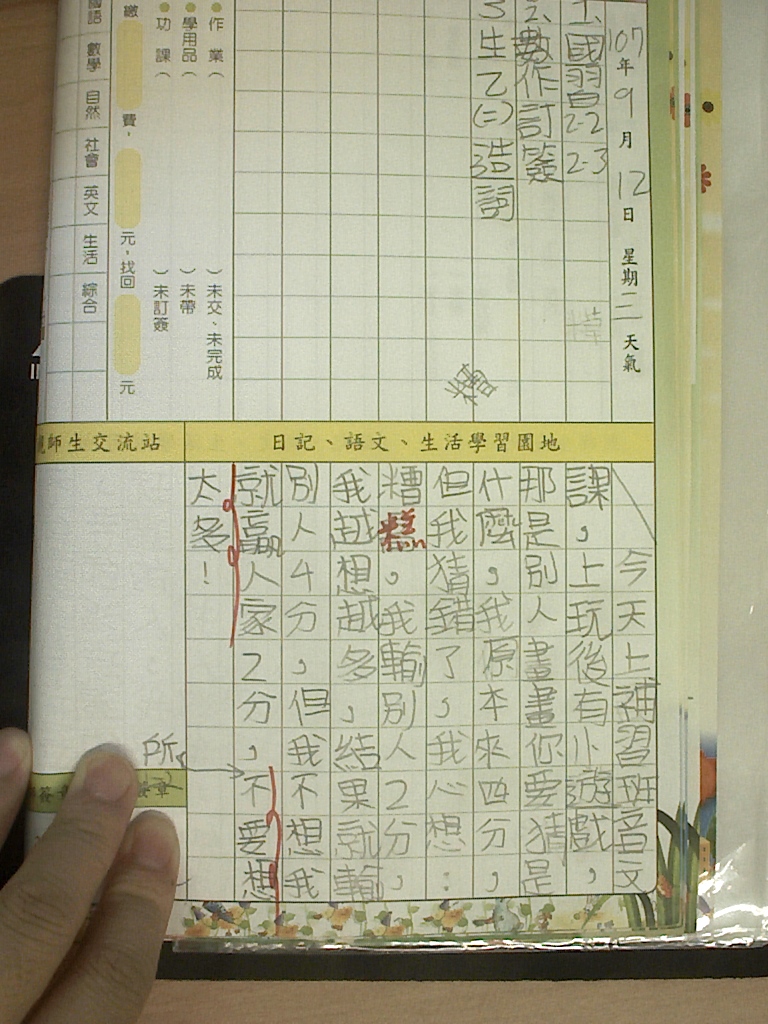 107年9月12日 星期三 天氣
1、國習2-2 2-3
2、數作訂簽
3生乙(二)造詞
糟
●作 業( )未交、未完成
●學用品( )未帶
●功 課( )未訂簽
繳 費,元,找回 元
國語 數學 自然 社會 英文 生活 綜合
日記、語文、生活學習園地
師生交流站
今天上補習班音文
課,上玩後有小遊戲,
那是別人畫畫你要猜是
什麼,我原本來四分,
但我猜錯了,我心想:
糟糕,我輸別人2分,
我越想越多,結果就輸
別人4分,但我不想我
就贏人家2分,所不要想
太多!